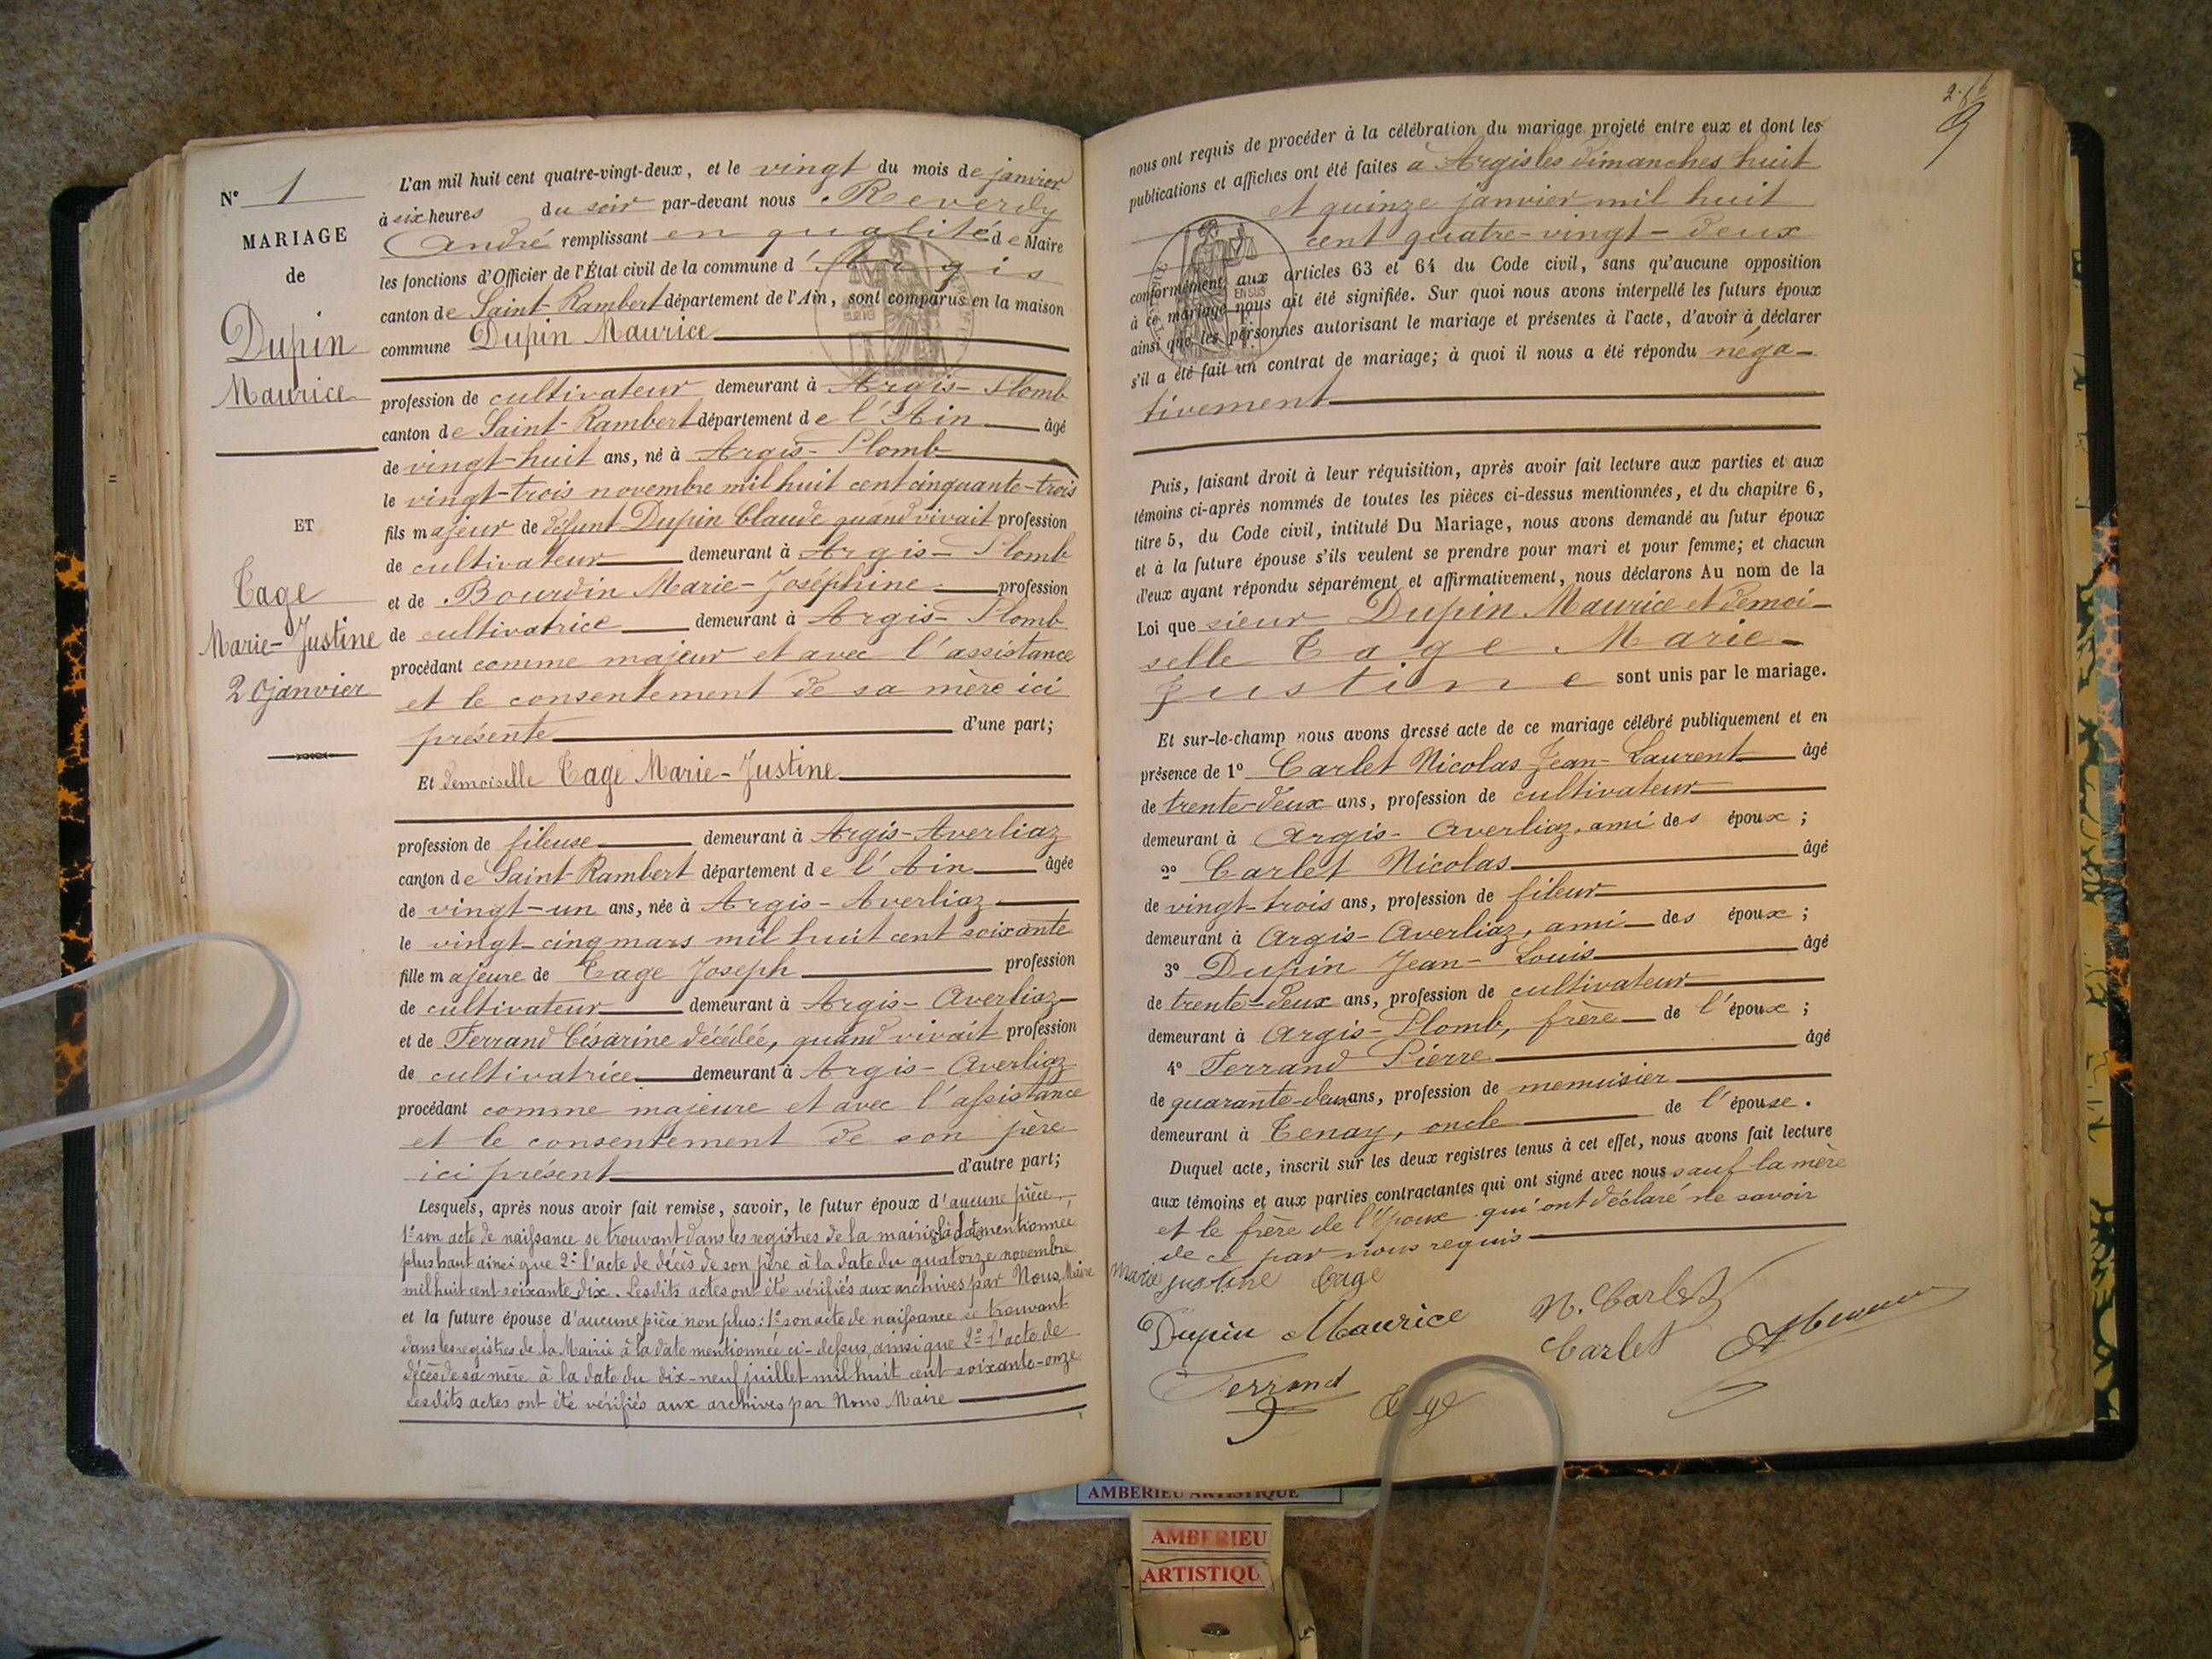 N° 1
MARIAGE
de
Dupin
Maurice
ET
Tage
Marie-Justine
20 janvier
L'an mil huit cent quatre-vingt-deux, et le vingt du mois de janvier
à six heures du soir par-devant nous Reverdy
André remplissant en qualité de Maire
les fonctions d'Officier de l'État civil de la commune d'Argis
canton de Saint-Rambert département de l'Ain, sont comparus en la maison
commune Dupin Maurice
profession de cultivateur demeurant à Argis-Plomb
canton de Saint-Rambert département de l'Ain âgé
de vingt-huit ans, né à Argis-Plomb
le vingt-trois novembre mil huit cent cinquante-trois
fils majeur de défunt Dupin Claude quand vivait profession
de cultivateur demeurant à Argis-Plomb
et de Bourdin Marie-Joséphine profession
de cultivatrice demeurant à Argis-Plomb
procédant comme majeur et avec l'assistance
et le consentement de sa mère ici
présente d'une part;
Et demoiselle Tage Marie-Justine
profession de fileuse demeurant à Argis-Averliaz
canton de Saint Rambert département de l'Ain âgée
de vingt-un ans, née à Argis-Averliaz
le vingt-cinq mars mil huit cent soixante
fille majeure de Tage Joseph profession
de cultivateur demeurant à Argis-Averliaz
et de Ferrand Césarine décédée, quand vivait profession
de cultivatrice demeurant à Argis-Averliaz
procédant comme majeure et avec l'assistance
et le consentement de son père
ici présent d'autre part;
Lesquels, après nous avoir fait remise, savoir, le futur époux d'aucune pièce,
1° son acte de naissance se trouvant dans les registres de la mairie à la date mentionnée
plus haut ainsi que 2° l'acte de décès de son père à la date du quatorze novembre
mil huit cent soixante-dix. Lesdits actes ont été vérifiés aux archives par Nous, Maire
et la future épouse d'aucune pièce non plus: 1° son acte de naissance se trouvant
dans les registres de la Mairie à la date mentionnée ci-dessus, ainsi que 2° l'acte de
décès de sa mère à la date du dix-neuf juillet mil huit cent soixante-onze
Lesdits actes ont été vérifiés aux archives par Nous Maire
nous ont requis de procéder à la célébration du mariage projeté entre eux et dont les
publications et affiches ont été faites à Argis les dimanches huit
et quinze janvier mil huit
cent quatre-vingt-deux
conformément aux articles 63 et 64 du Code civil, sans qu'aucune opposition
à ce mariage nous ait été signifiée. Sur quoi nous avons interpellé les futurs époux
ainsi que les personnes autorisant le mariage et présentes à l'acte, d'avoir à déclarer
s'il a été fait un contrat de mariage; à quoi il nous a été répondu néga-
tivement
Puis, faisant droit à leur réquisition, après avoir fait lecture aux parties et aux
témoins ci-après nommés de toutes les pièces ci-dessus mentionnées, et du chapitre 6,
titre 5, du Code civil, intitulé Du Mariage, nous avons demandé au futur époux
et à la future épouse s'ils veulent se prendre pour mari et pour femme; et chacun
d'eux ayant répondu séparément et affirmativement, nous déclarons Au nom de la
Loi que sieur Dupin Maurice et demoi-
selle Tage Marie-
Justine sont unis par le mariage.
Et sur-le-champ nous avons dressé acte de ce mariage célébré publiquement et en
présence de 1° Carlet Nicolas Jean-Laurent âgé
de trente-deux ans, profession de cultivateur
demeurant à Argis-Averliaz, ami des époux;
2° Carlet Nicolas âgé
de vingt-trois ans, profession de fileur
demeurant à Argis-Averliaz, ami des époux;
3° Dupin Jean-Louis âgé
de trente-deux ans, profession de cultivateur
demeurant à Argis-Plomb, frère de l'époux;
4° Ferrand Pierre âgé
de quarante-deux ans, profession de menuisier
demeurant à Tenay, oncle de l'épouse.
Duquel acte, inscrit sur les deux registres tenus à cet effet, nous avons fait lecture
aux témoins et aux parties contractantes qui ont signé avec nous sauf la mère
et le frère de l'époux qui ont déclaré ne savoir
de ce par nous requis
Marie justine tage
Dupin Maurice
N. Carlet
Carlet
Ferrand
Tage
AMBERIEU ARTISTIQUE
AMBERIEU
ARTISTIQU